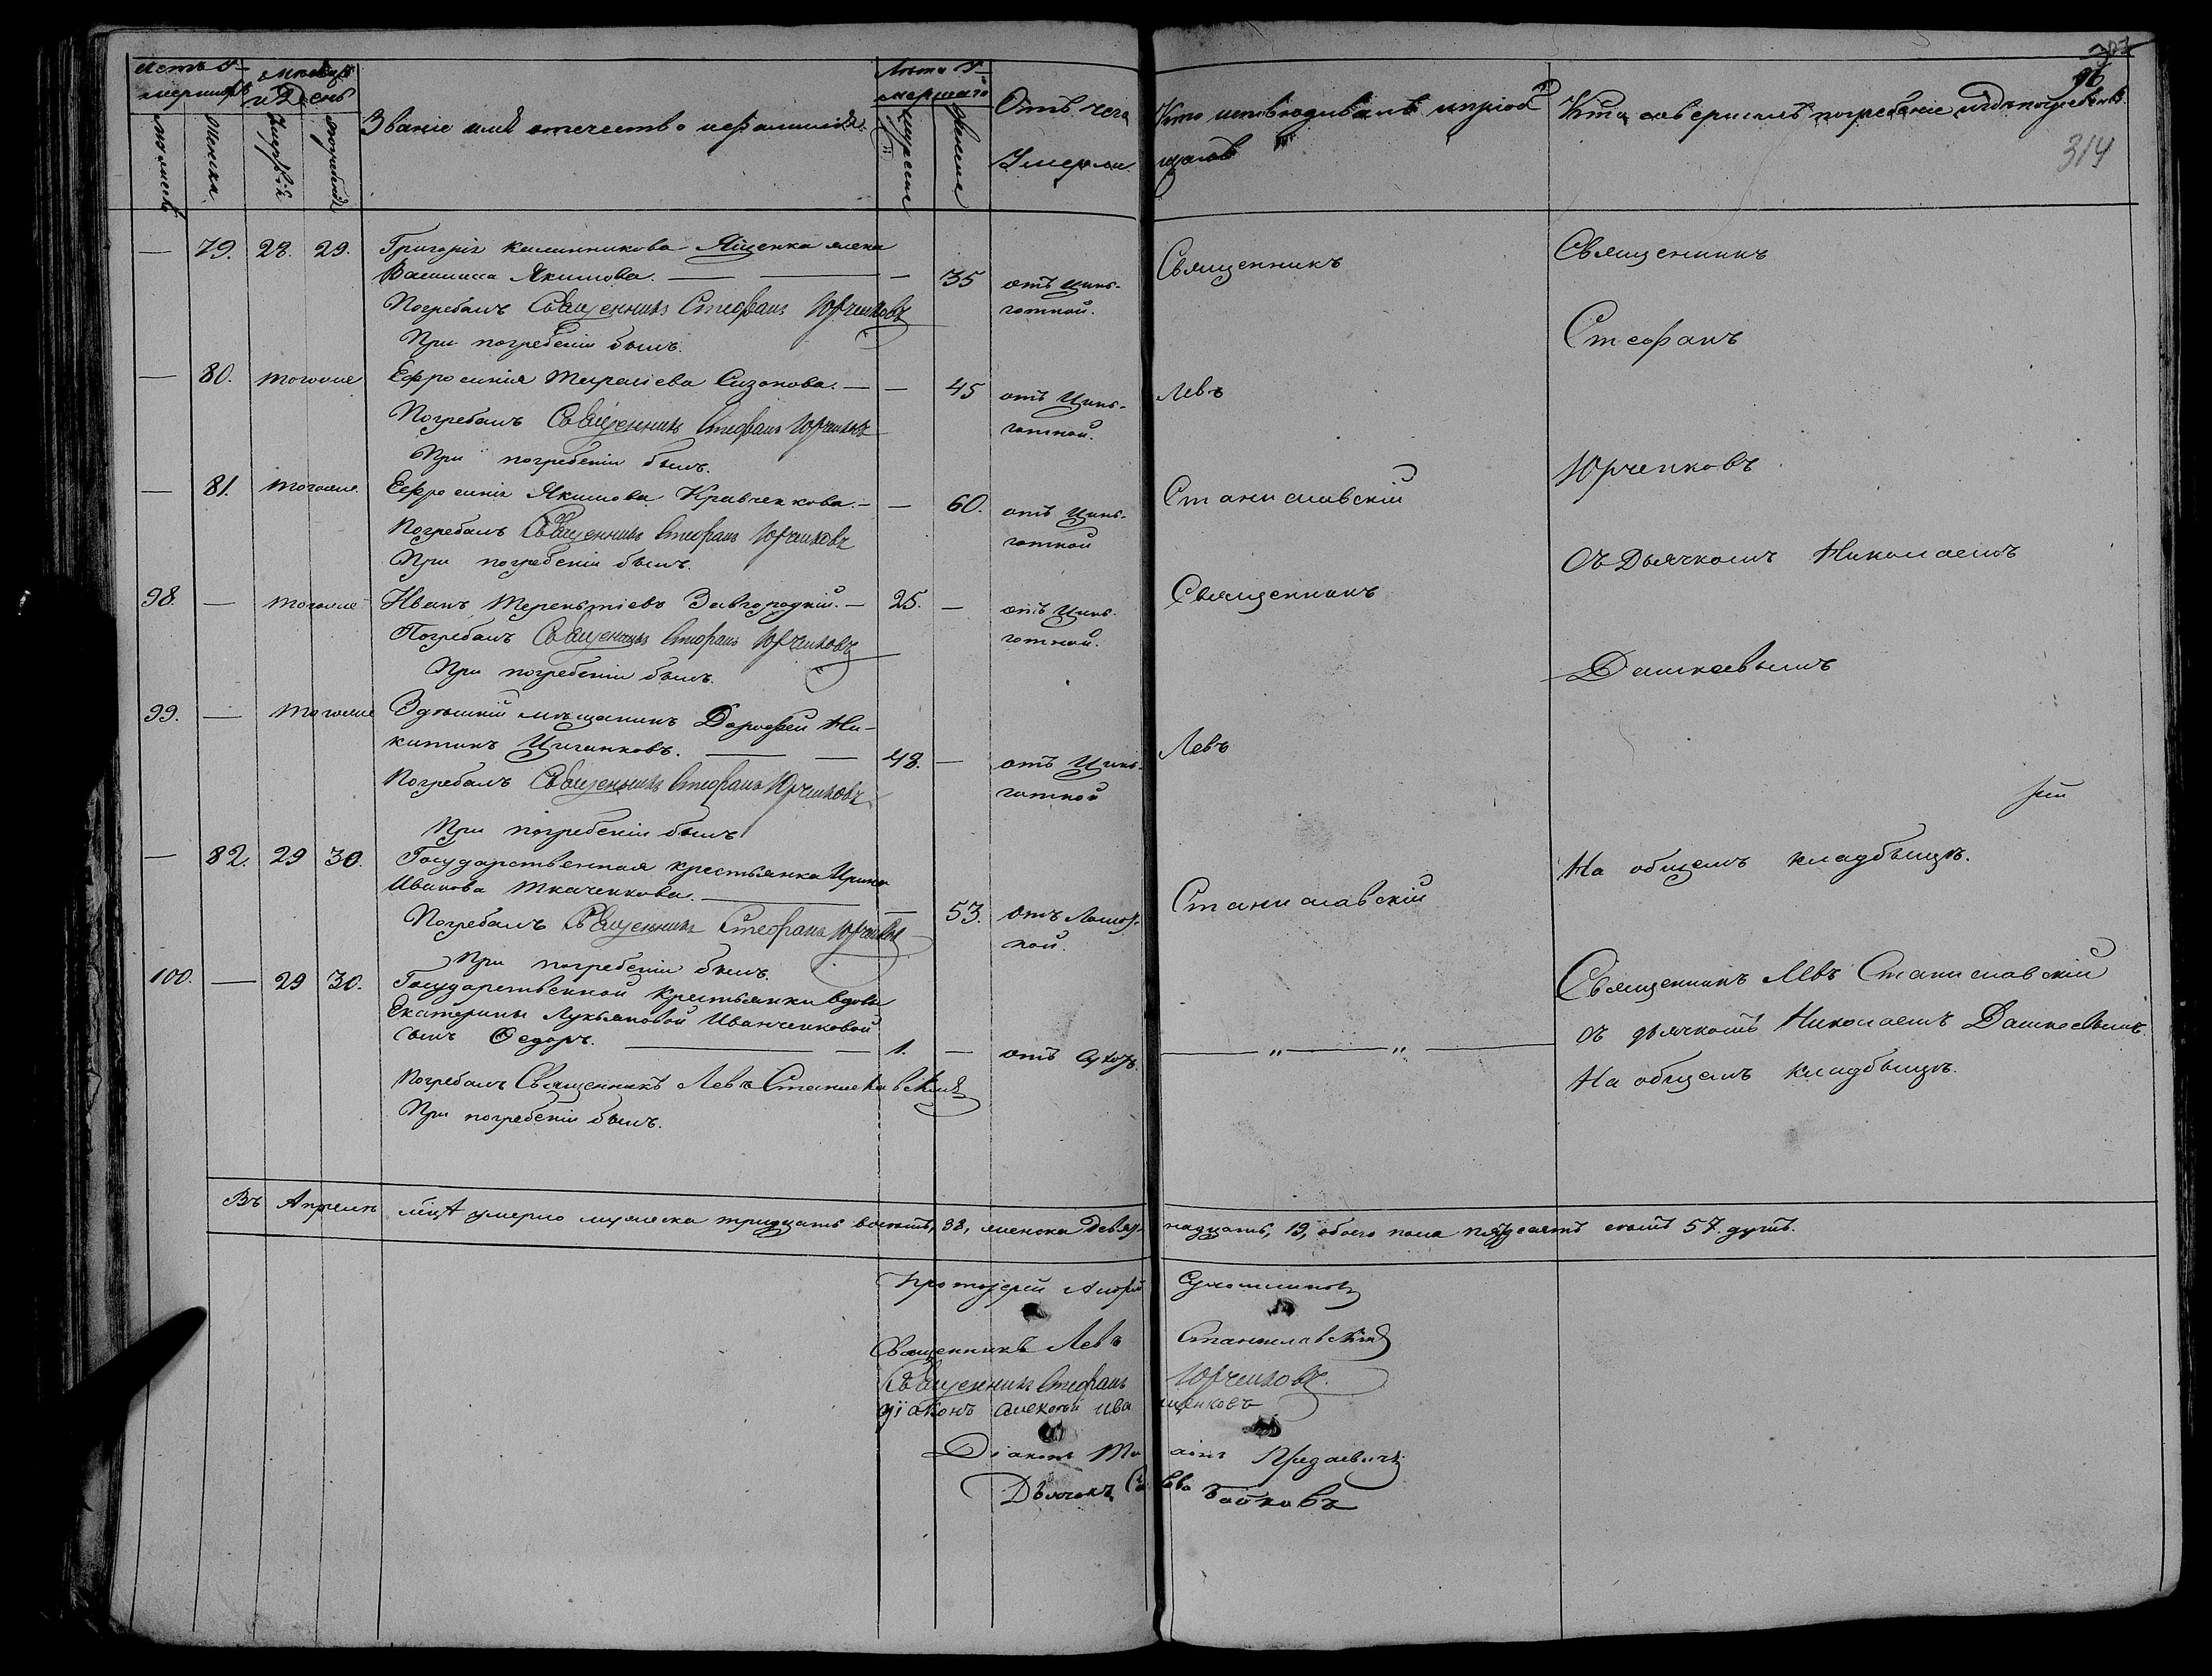 96
314
Званіе имя отечество и фамилія.
Отъ чего умерли.
Кто исповѣдывалъ и пріобщалъ
Кто совершилъ погребеніе и гдѣ погребены.
Мужеска
Женска
Мужеска
Женска
— 79. 28. 29. Григорія Калинникова Яценка жена
Василисса Якимова. — 35 отъ цынготной.
Погребалъ Священникъ Стефанъ Юрченковъ
При погребеніи былъ.
— 80. тогоже Ефросинія Тарасіева Сизонова. — 45 отъ цынготной.
Погребалъ Священникъ Стефанъ Юрченковъ
При погребеніи былъ.
— 81. тогоже Ефросинія Якимова Кравченкова. — 60. отъ цынготной
Погребалъ Священникъ Стефанъ Юрченковъ
При погребеніи былъ.
98. — тогоже Иванъ Терентіевъ Завгородній. 25. — отъ цынготной.
Погребалъ Священникъ Стефанъ Юрченковъ
При погребеніи былъ.
99. — тогоже Здѣшній мѣщанинъ Дорофей Ни-
китинъ Циганковъ. 48. — отъ цынготной
Погребалъ Священникъ Стефанъ Юрченковъ
При погребеніи былъ
— 82. 29 30. Государственная крестьянка Ирина
Иванова Ткаченкова. — 53. отъ
Погребалъ Священникъ Стефанъ Юрченковъ
При погребеніи былъ.
100. — 29 30. Государственной крестьянки вдовы
Екатерины Лукьяновой Иванченковой
сынъ Федоръ. 1. — отъ сухоъ.
Погребалъ Священникъ Левъ Станиславскій
При погребеніи былъ.
Священникъ
Левъ
Станиславскій
Священникъ
Левъ
Станиславскій
— „ — „ —
Священникъ
Стефанъ
Юрченковъ
Съ Дьячкомъ Николаемъ
Дашкевымъ
На общемъ кладбыщѣ.
Священникъ Левъ Станиславскій
съ дьячкомъ Николаемъ Дашкевымъ
На общемъ кладбыщѣ.
Въ Апрелѣ мцѣ умерло мужеска тридцать восемь, 38, женска девятнадцать, 19, обоего пола пятдесятъ семь 57. душъ.
Протоіерей Андрей Сухомлиновъ
Священникъ Левъ Станиславскій
Священникъ Стефанъ Юрченковъ
Діаконъ Алексѣй Иващенковъ
Діаконъ
Дьячокъ Савва Бойковъ